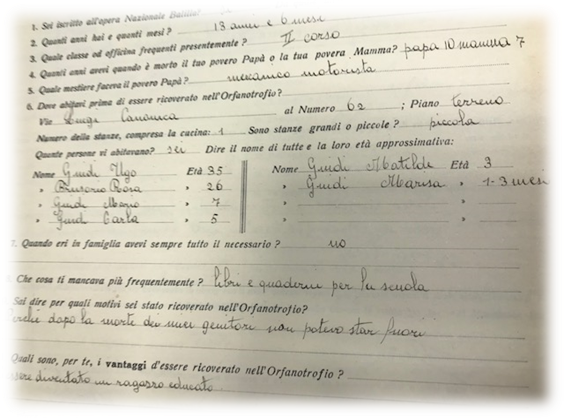 1. Sei iscritto all'opera Nazionale Balilla?
2. Quanti anni hai e quanti mesi? 13 anni e 6 mesi
3. Quale classe od officina frequenti presentemente? II corso
4. Quanti anni avevi quando è morto il tuo povero Papà o la tua povera Mamma? papa 10 mamma 7
5. Quale mestiere faceva il povero Papà? meccanico motorista
6. Dove abitavi prima di essere ricoverato nell'Orfanotrofio?
Via Luigi Canonica al Numero 62 ; Piano terreno
Numero della stanze, compresa la cucina: 1 Sono stanze grandi o piccole? piccola
Quante persone vi abitavano? sei Dire il nome di tutte e la loro età approssimativa:
Nome Guidi Ugo Età 35 Nome Guidi Matilde Età 3
» Rosa » 26 » Guidi Marisa » 1-3 mesi
» Guidi Mario » 7 » »
» Guidi Carla » 5 » »
7. Quando eri in famiglia avevi sempre tutto il necessario? no
Che cosa ti mancava più frequentemente? libri e quaderni per la scuola
Sai dire per quali motivi sei stato ricoverato nell'Orfanotrofio?
perchè dopo la morte dei miei genitori non potevo star fuori
Quali sono, per te, i vantaggi d'essere ricoverato nell'Orfanotrofio?
essere diventato un ragazzo educato